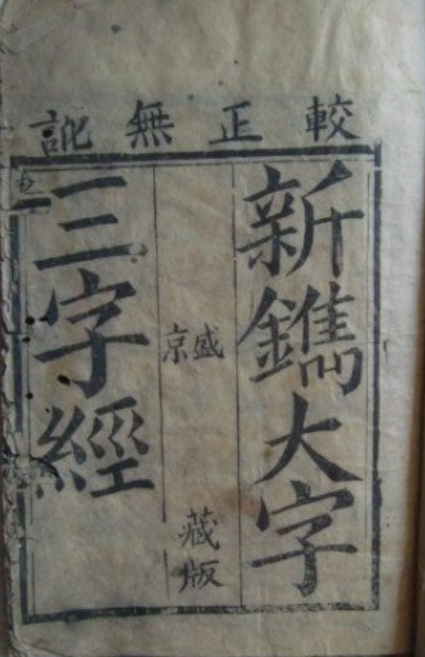 較正無訛
新鐫大字
盛京
藏版
三字經